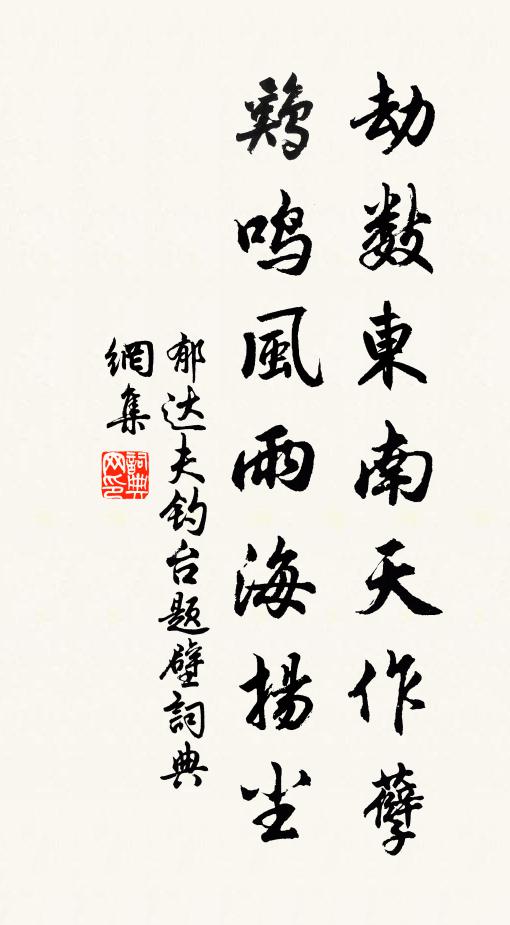 劫数東南天作孽
鷄鸣風雨海揚尘
郁达夫钓台题壁詞典
網集
詞典网印